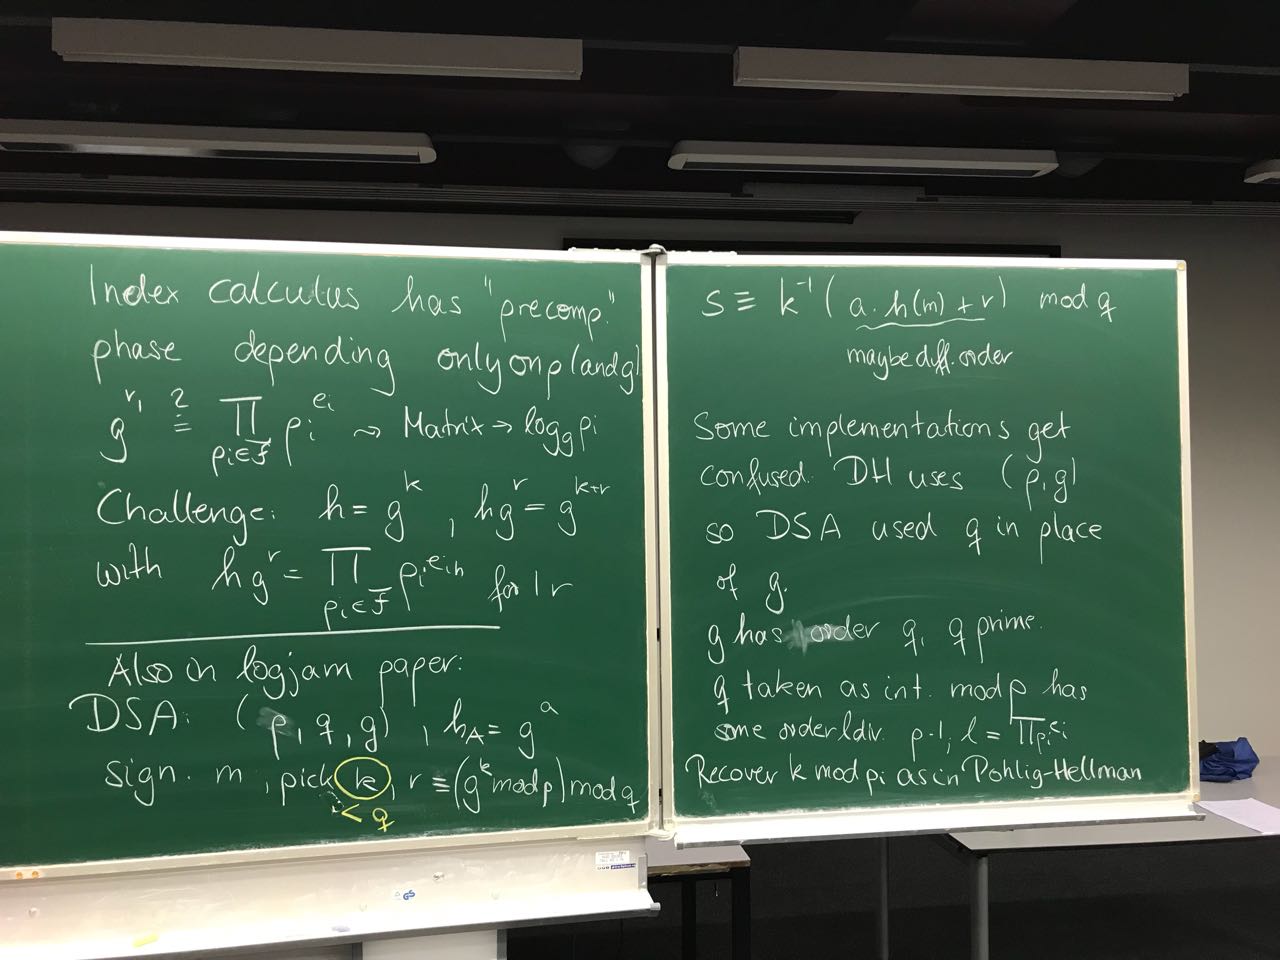 Index calculus has "precomp."
phase depending only on p (and g)
g^{r_i} ≟ ∏_{p_i∈F} p_i^{e_i} ⇝ Matrix → log_g p_i
Challenge: h = g^k, hg^r = g^{k+r}
with hg^r = ∏_{p_i∈F} p_i^{e_{ih}} for 1 r
Also in logjam paper:
DSA: (p, q, g), h_A = g^a
sign. m, pick k, r ≡ (g^k mod p) mod q
< q
s ≡ k^{-1} (a·h(m) + r) mod q
maybe diff. order
Some implementations get
confused. DH uses (p, g)
so DSA used q in place
of g.
g has order q, q prime.
q taken as int. mod p has
some order l div. p-1, l = ∏p_i^{e_i}
Recover k mod p_i as in Pohlig-Hellman